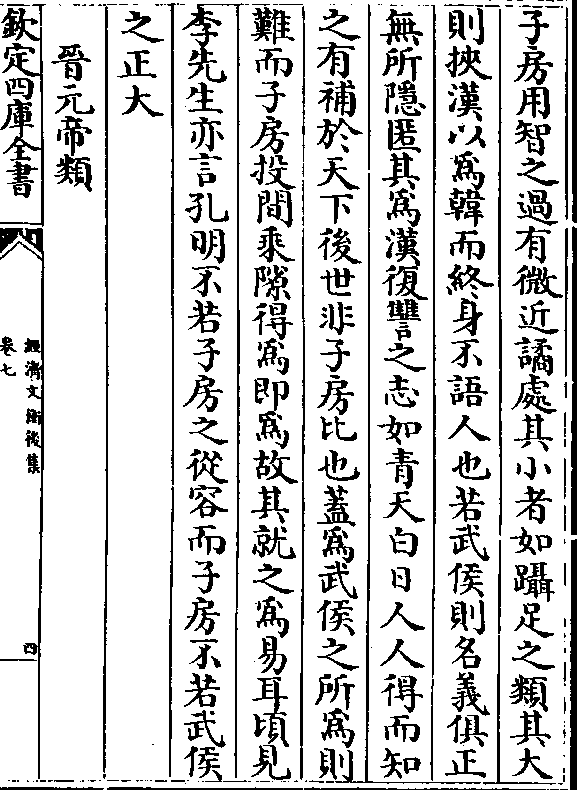 子房用智之過有微近譎處其小者如躡足之類其大
則挾漢以為韓而終身不語人也若武侯則名義俱正
無所隱匿其為漢復讐之志如青天白日人人得而知
之有補於天下後世非子房比也蓋為武侯之所為則
難而子房投間乘隙得為即為故其就之為易耳頃見
李先生亦言孔明不若子房之從容而子房不若武侯
之正大
晉元帝類
欽定四庫全書
經濟文衡後集
卷七
四